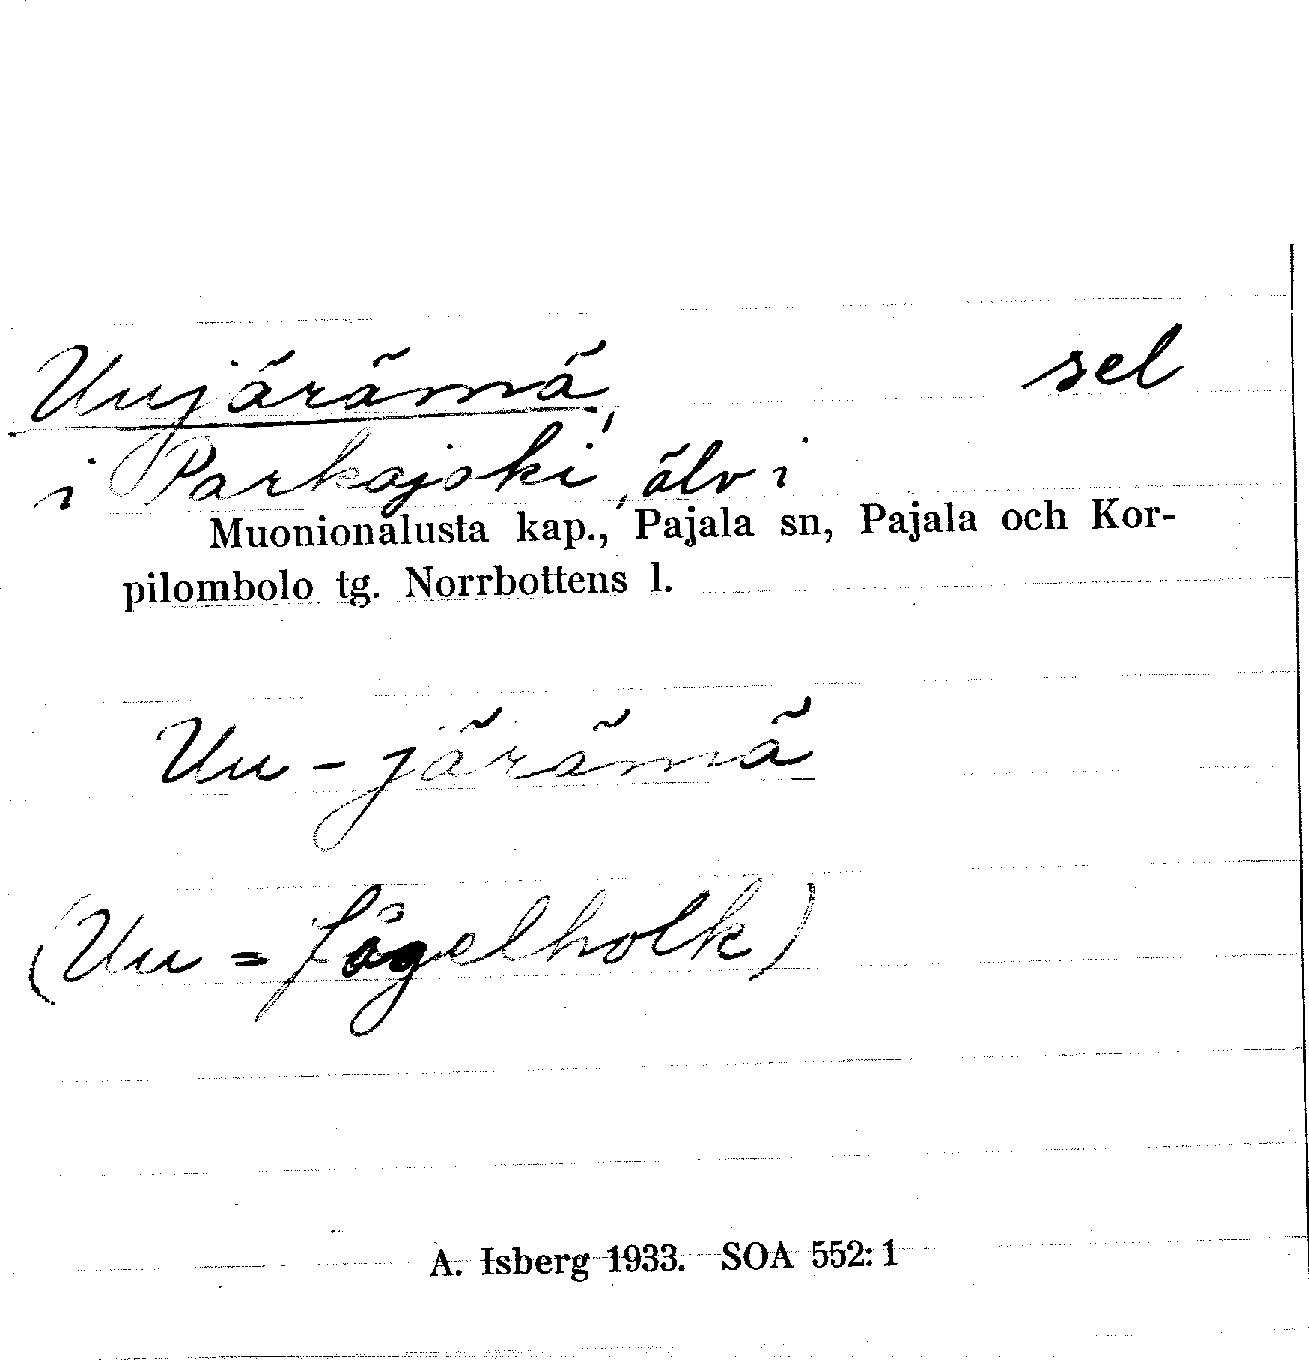 Uujärämä, sel
i Parkajoki, älv i
Muonionalusta kap., Pajala sn, Pajala och Kor-
pilombolo tg. Norrbottens l.
Uu - järämä
(Uu = fågelholk)
A. Isberg 1933. SOA 552: 1